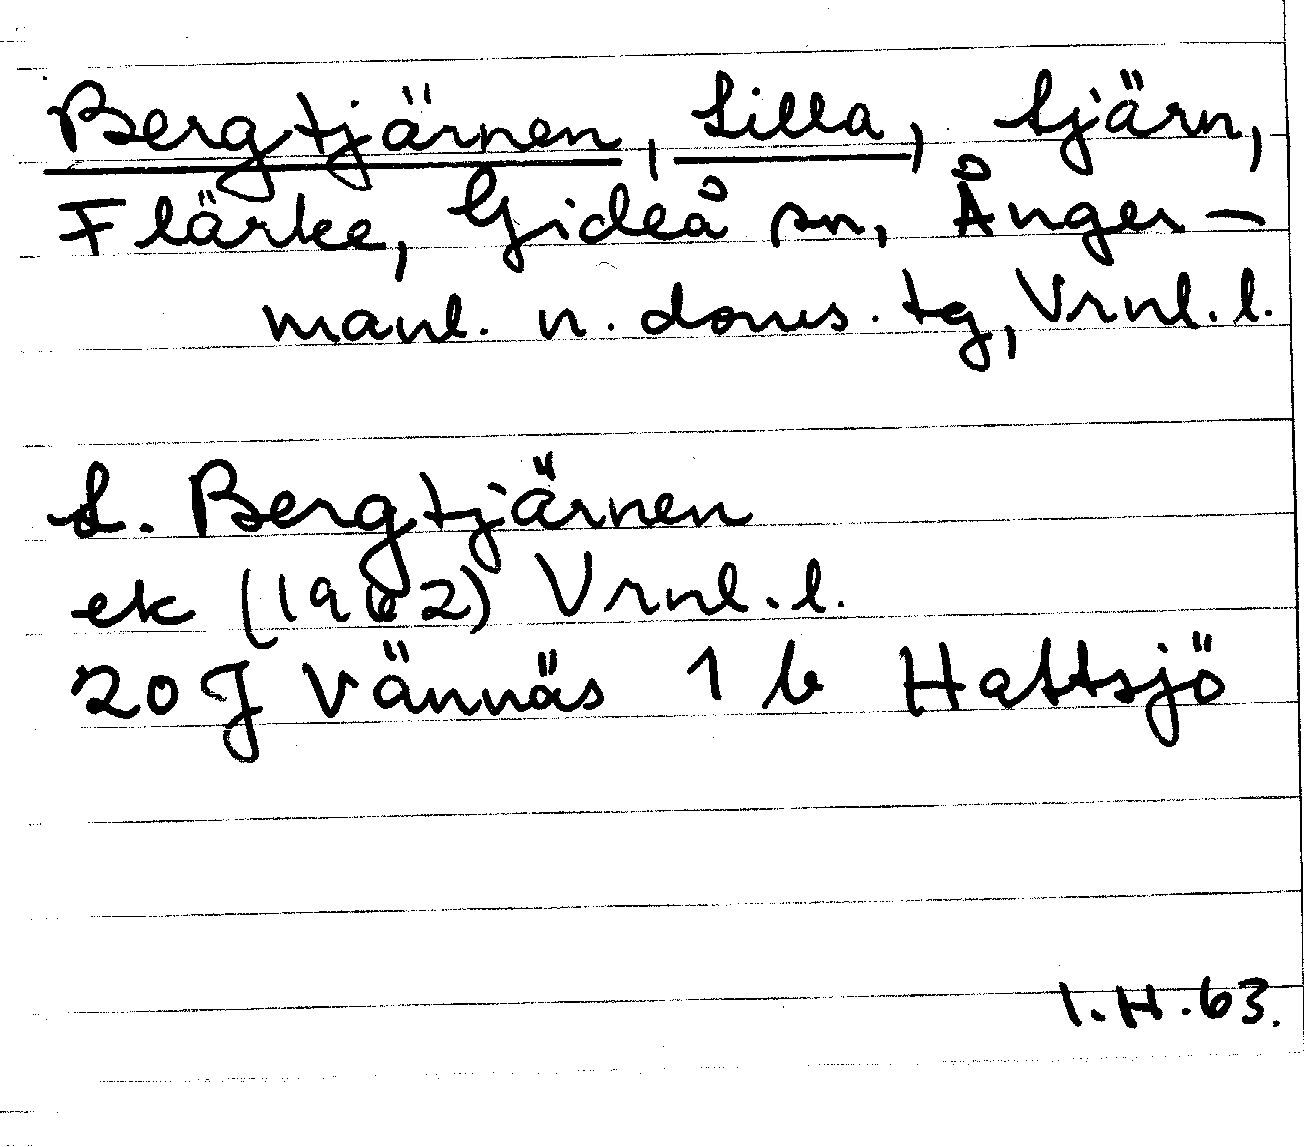 Bergtjärnen, Lilla, tjärn,
Flärke, Gideå sn, Ånger-
manl. n. doms. tg, Vrnl. l.
L. Bergtjärnen
ek (1962) Vrnl. l.
20 J Vännäs 1 b Hattsjö
I.H.63.